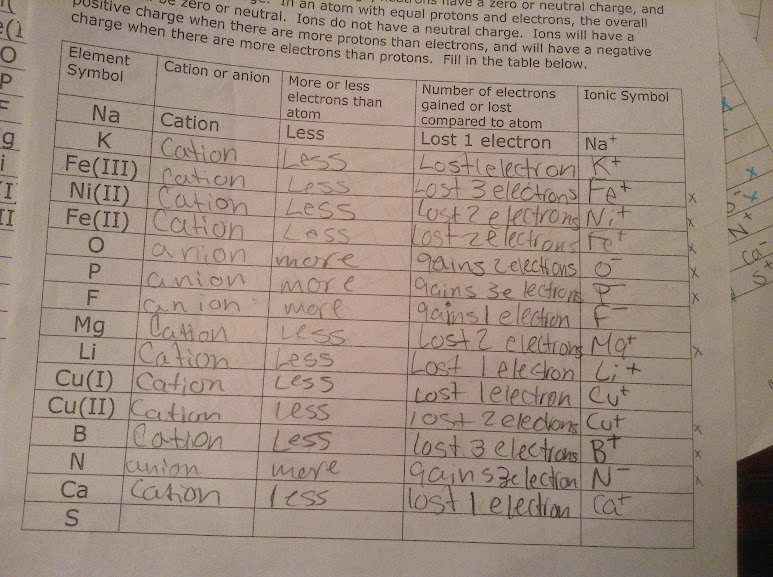 have a zero or neutral charge, and
be zero or neutral. In an atom with equal protons and electrons, the overall
positive charge when there are more protons than electrons, and will have a negative
charge when there are more electrons than protons. Fill in the table below.
Element Symbol Cation or anion More or less electrons than atom Number of electrons gained or lost compared to atom Ionic Symbol
Na Cation Less Lost 1 electron Na⁺
K Cation Less Lost 1 electron K+
Fe(III) Cation Less Lost 3 electrons Fe+ x
Ni(II) Cation Less Lost 2 electrons Ni+ x
Fe(II) Cation Less Lost 2 electrons Fe+ x
O anion more gains 2 elections O⁻ x
P anion more gains 3 electrons P⁻ x
F anion more gains 1 electron F⁻
Mg Cation Less Lost 2 electrons Mg+ x
Li Cation Less Lost 1 electron Li+
Cu(I) Cation Less Lost 1 electron Cu+
Cu(II) Cation less lost 2 electrons Cu+ x
B Cation Less lost 3 electrons B+ x
N anion more gains 3 electron N⁻ x
Ca Cation less lost 1 electron Ca+
S